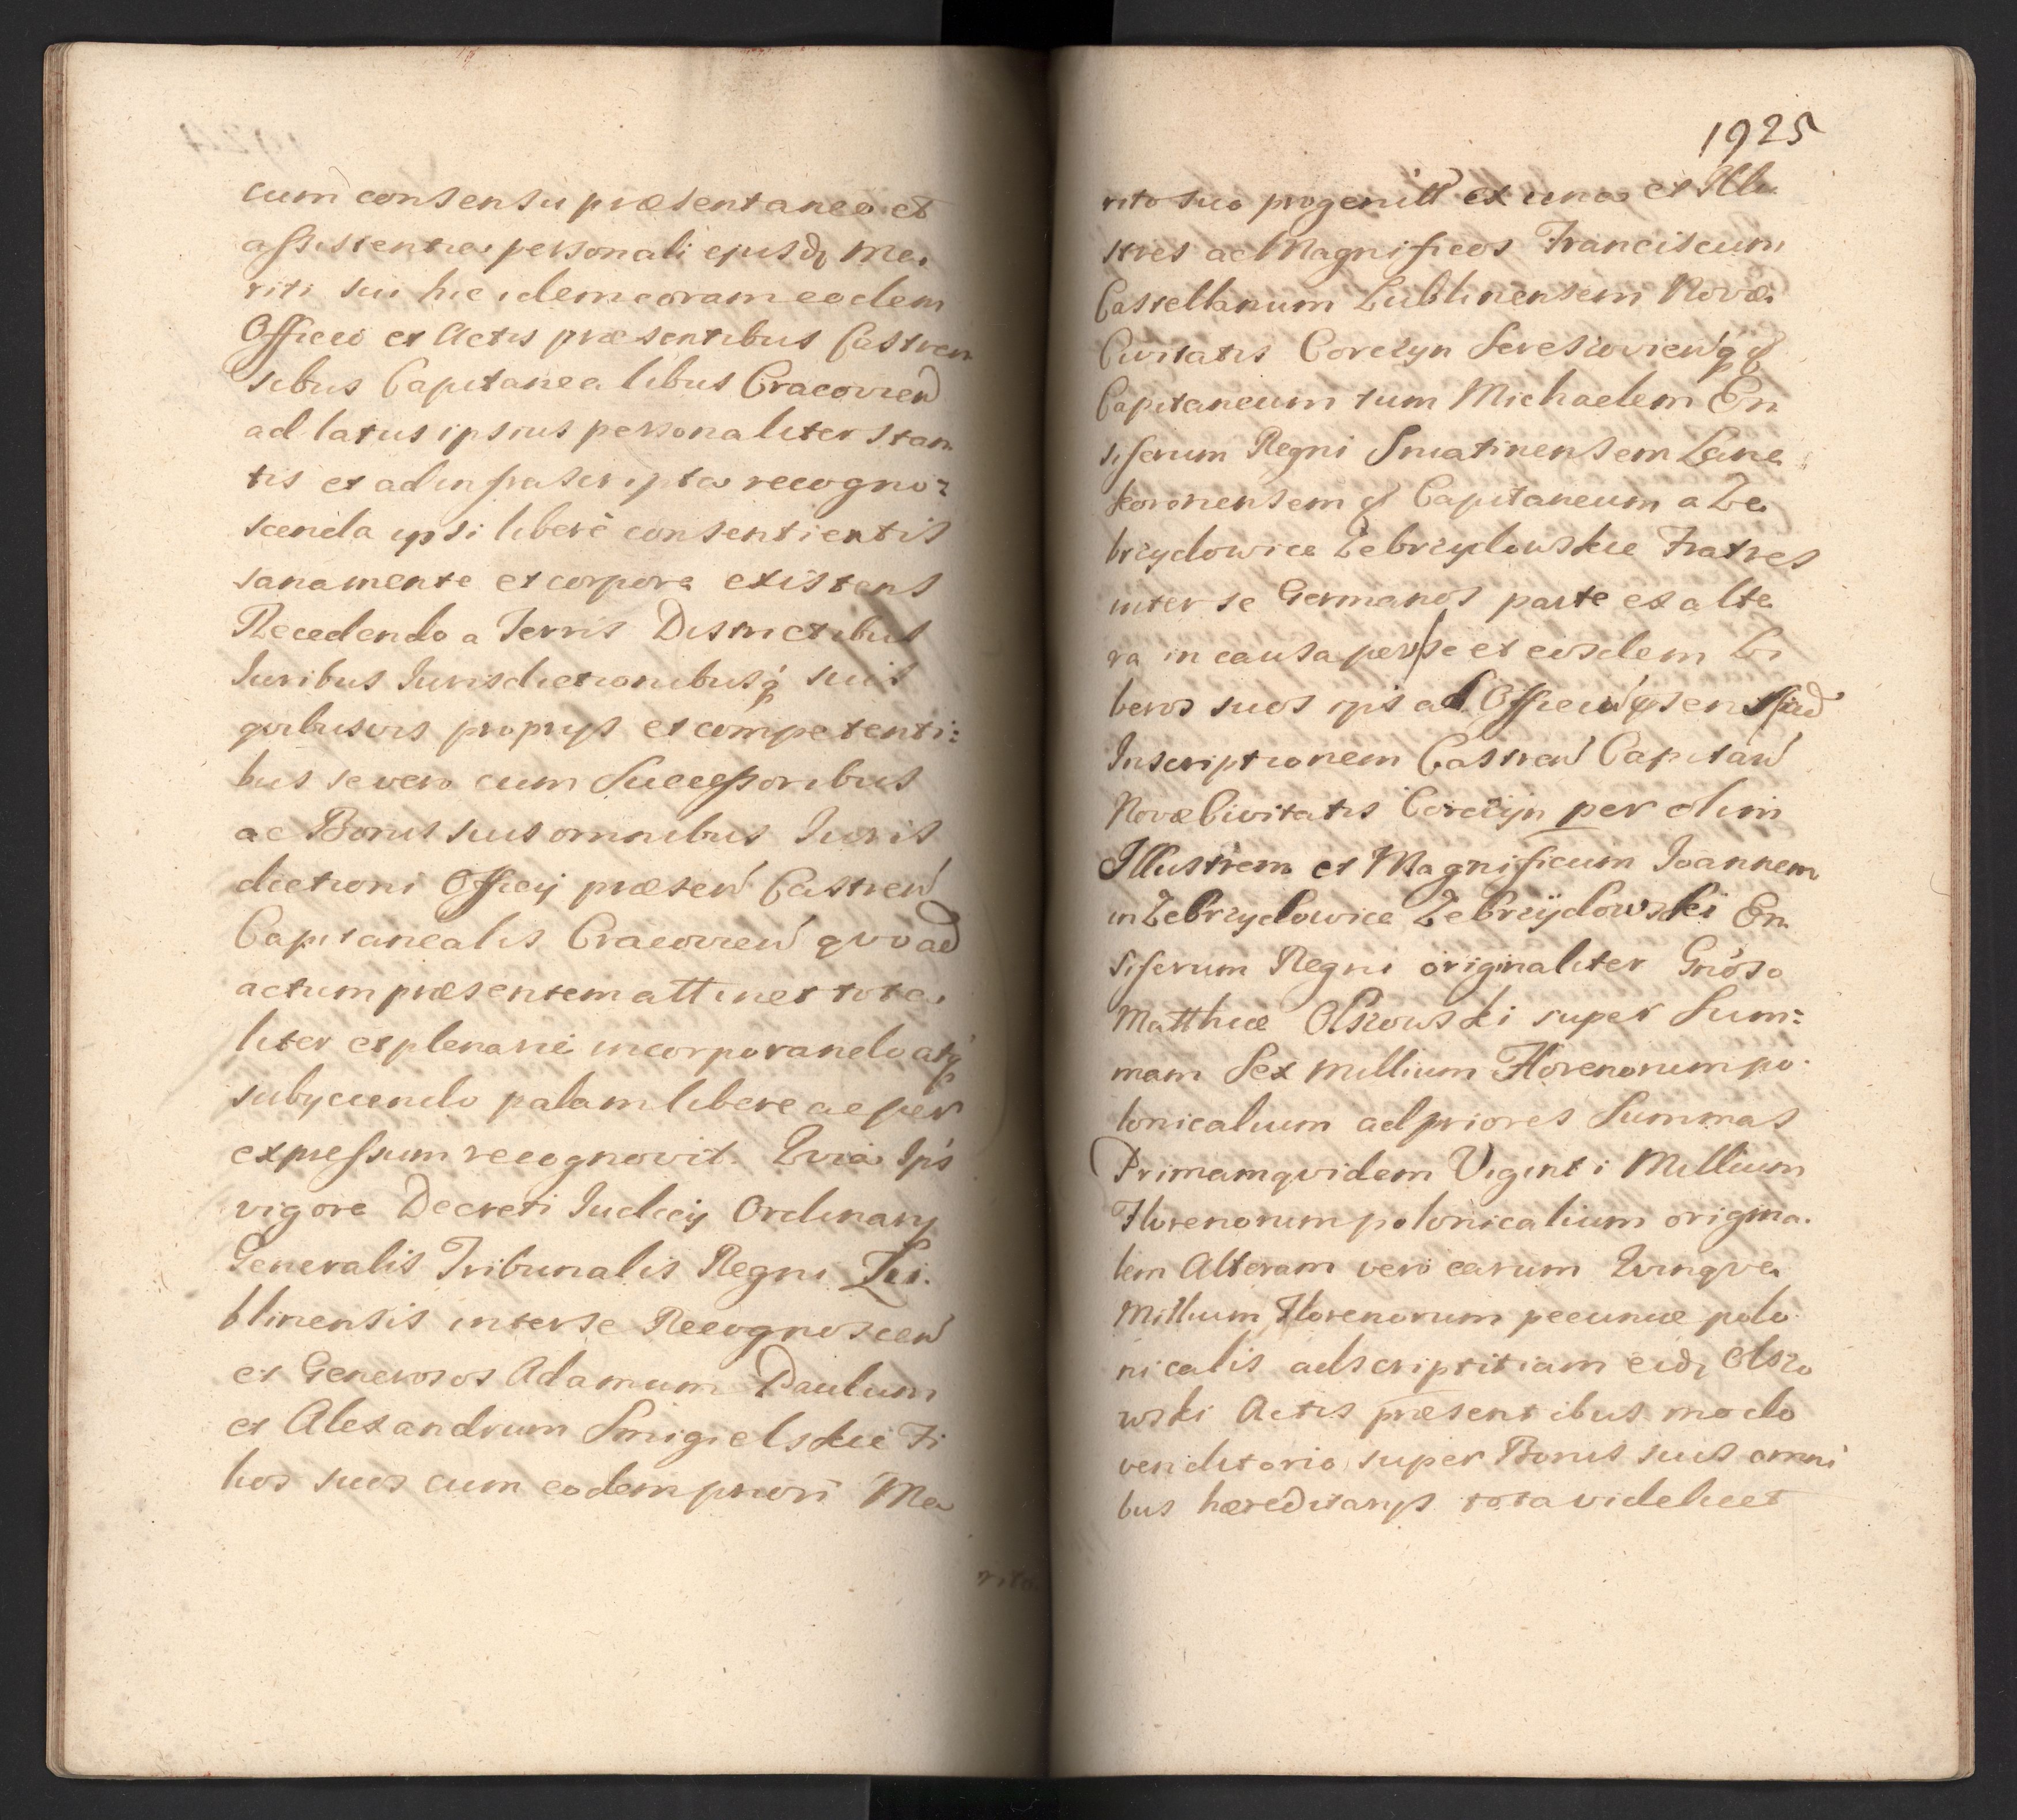 cum consensu præsentaneo et
assistentia personali ejusdq Ma
riti sui hic idem coram eodem
Officio et Actis præsentibus Castren
sibus Capitanealibus Cracovien
ad latus ipsius personaliter stan
tis et ad infrascripta recogno-
scenda ipsi liberè consentientis
sana mente et corpore existens
Recedendo a Terris Districtibus
Iuribus Iurisdictionibusq suis
quibusvis proprys et competenti:
bus se vero cum Successoribus
ac Bonis suis omnibus Iuris
dictioni Officy præsen Castren
Capitanealis Cracovien qvoad
actum præsentem attinet tota
liter et plenarie incorporando atq
subyciendo palam libere ac per
expressum recognovit. Qvia Ips
vigore Decreti Iudicy Ordinary
Generalis Tribunalis Regni Lu
blinensis inter se Recognoscen
et Generosos Adamum Paulum
et Alexandrum Smigielskie Fi
lios suos cum eodem priori Ma
rito
1925
rito suo progenitt ex una et Illu
stres ac Magnificos Franciscum
Castellanum Lublinensem Novæ
Civitatis Corczyn
Capitaneum tum Michaelem En
siferum Regni Sniatinensem Lanc
koronensem q Capitaneum a Ze
brzydowice Zebrzydowskie Fratres
inter se Germanos parte ex alte
ra in causa per se et eosdem Li
beros suos ipis ad Officiu
Inscriptionem Castren Capitan
Novæ Civitatis Corczyn per olim
Illustrem et Magnificum Joannem
in Zebrzydowice Zebrzÿdowski En
siferum Regni originaliter Gnoso
Matthiæ Olszowski super Sum:
mam Sex Millium Florenorum po
lonicalium ad priores Summas
Primam qvidem Viginti Millium
Florenorum polonicalium origina
lem Alteram vero earum Qvinqve
Millium Florenorum pecuniæ polo
nicalis adscriptitiam eidq Olszo
wski Actis præsentibus modo
venditorio super Bonis suis omni
bus hæreditarys tota videlicet